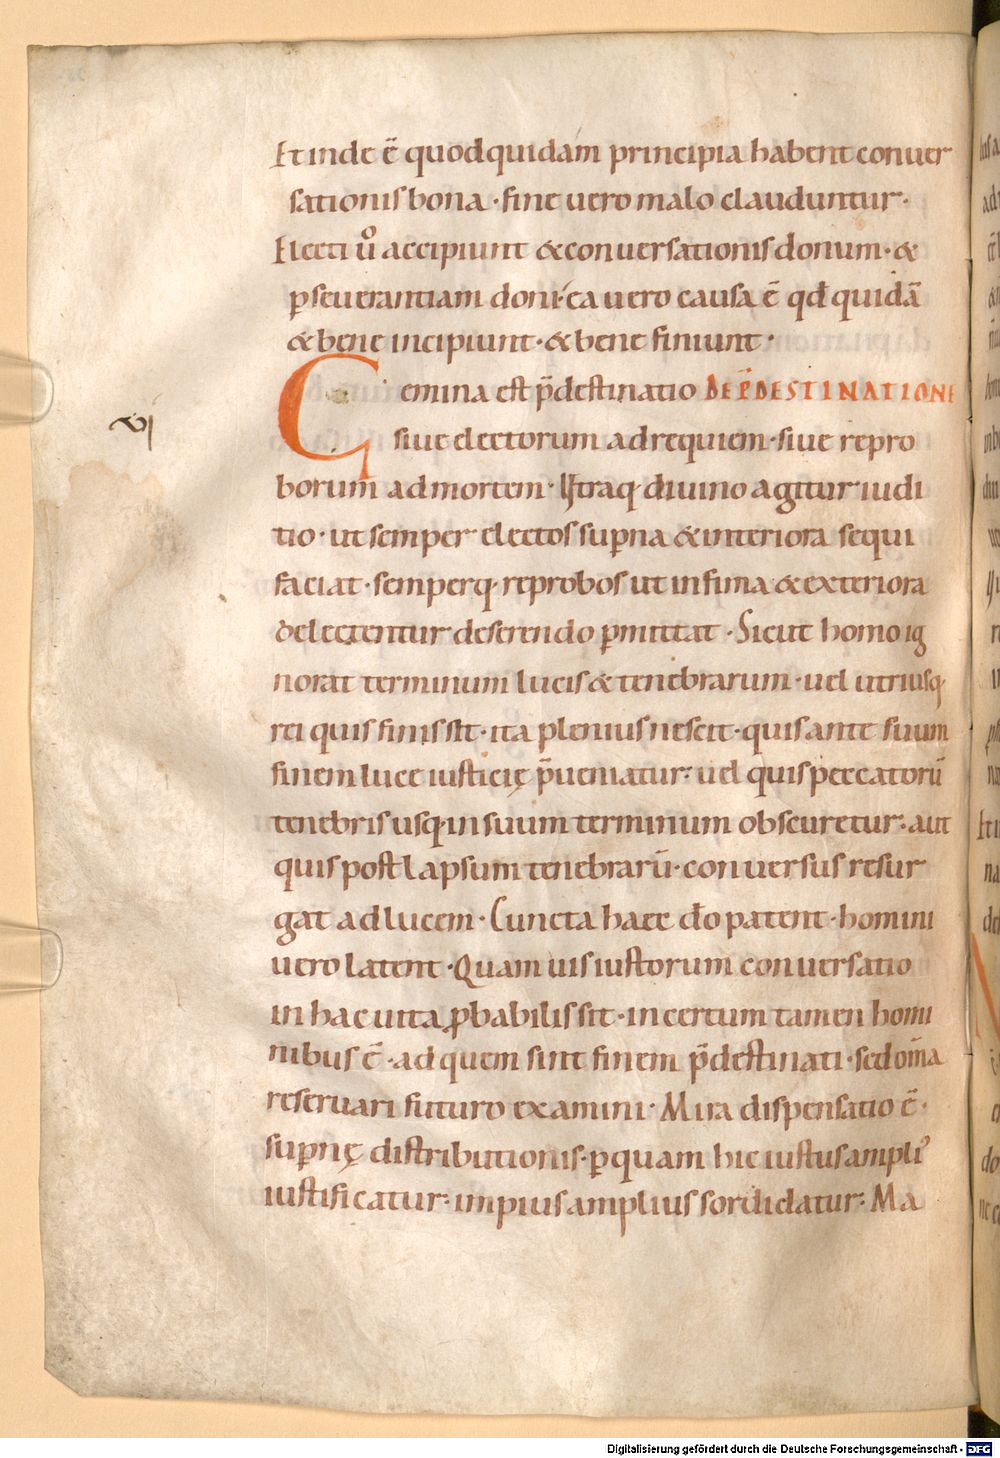 Et inde ē quod quidam principia habent conuer
sationis bona · fine uero malo clauduntur·
Electi ūo accipiunt & conuersationis donum· &
p̱seuerantiam doni· ea uero causa ē qđ quidā
& bene incipiunt · & bene finiunt·
Gemina est p̄destinatio DE P̄DESTINATIONE
VI
siue electorum ad requiem · siue repro
borum ad mortem · Vtraq· diuino agitur iudi
tio · ut semper electos sup̱na & interiora sequi
faciat · semperq· reprobos ut infima & exteriora
delectentur deserendo p̱mittat · Sicut homo ig
norat terminum lucis & tenebrarum · uel utriusq·
rei quis finis sit · ita plenius nescit · quis ante suum
finem luce iusticię p̄ueniatur· uel quis peccatorū
tenebris usq· in suum terminum obscuretur · aut
quis post lapsum tenebrarū· conuersus resur
gat ad lucem · Cuncta haec do patent · homini
uero latent · Quamuis iustorum conuersatio
in hac uita ꝓbabilis sit · incertum tamen homi
nibus ē · ad quem sint finem p̄destinati · sed om̄a
reseruari futuro examini · Mira dispensatio ē ·
sup̱nę distributionis · p̱quam hic iustus ampli᾽
iustificatur· impius amplius sordidatur· Ma
Digitalisierung gefördert durch die Deutsche Forschungsgemeinschaft - DFG